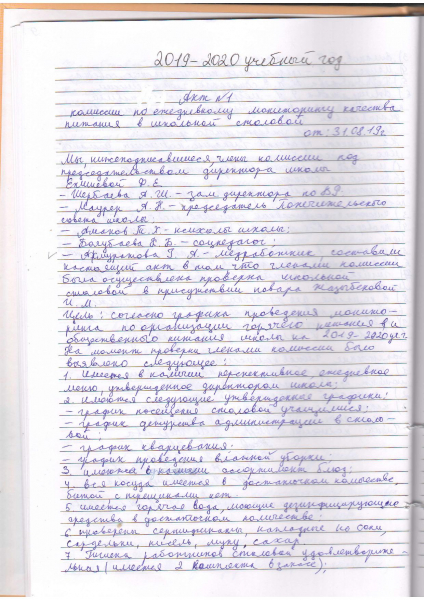 2019-2020 учебный год
Акт №1
комиссии по ежедневному мониторингу качества
питания в школьной столовой
от: 31.08.19г.
Мы, нижеподписавшиеся, члены комиссии под
председательством директора школы
Екишевой Ф.Е.
- Шербаева А.Ш. - зам. директора по ВР
- Маурер А.Н - председатель Попечительского
совета школы
- Аманов Т.Х - психолог школы;
- Болубаева К.Б. - соцпедагог;
- Ахмуратова Г.А. - медработник, составили
настоящий акт в том, что членами комиссии
была осуществлена проверка школьной
столовой в присутствии повара
И.М.
Цель: согласно графика проведения монито-
ринга по организации горячего питания и
общественного питания школы на 2019-2020уч.г.
На момент проверки членами комиссии было
выявлено следующее:
1. Имеется в наличии перспективное ежедневное
меню, утвержденное директором школы.
2. имеются следующие утвержденные графики:
- график посещения столовой учащимися;
- график дежурства администрации в столо-
вой;
- график кварцевания.
- график проведения влажной уборки;
3. имеются в наличии ассортимент блюд;
4. вся посуда имеется в достаточном количестве,
битой, с трещинами нет
5 имеется горячая вода, моющие дезинфицирующие
средства в достаточном количестве.
6 проверены сертификаты, накладные на соки,
сардельки, кисель, муку, сахар.
7. Гигиена работников столовой удовлетворите-
льная (имеется 2 комплекта в запасе);